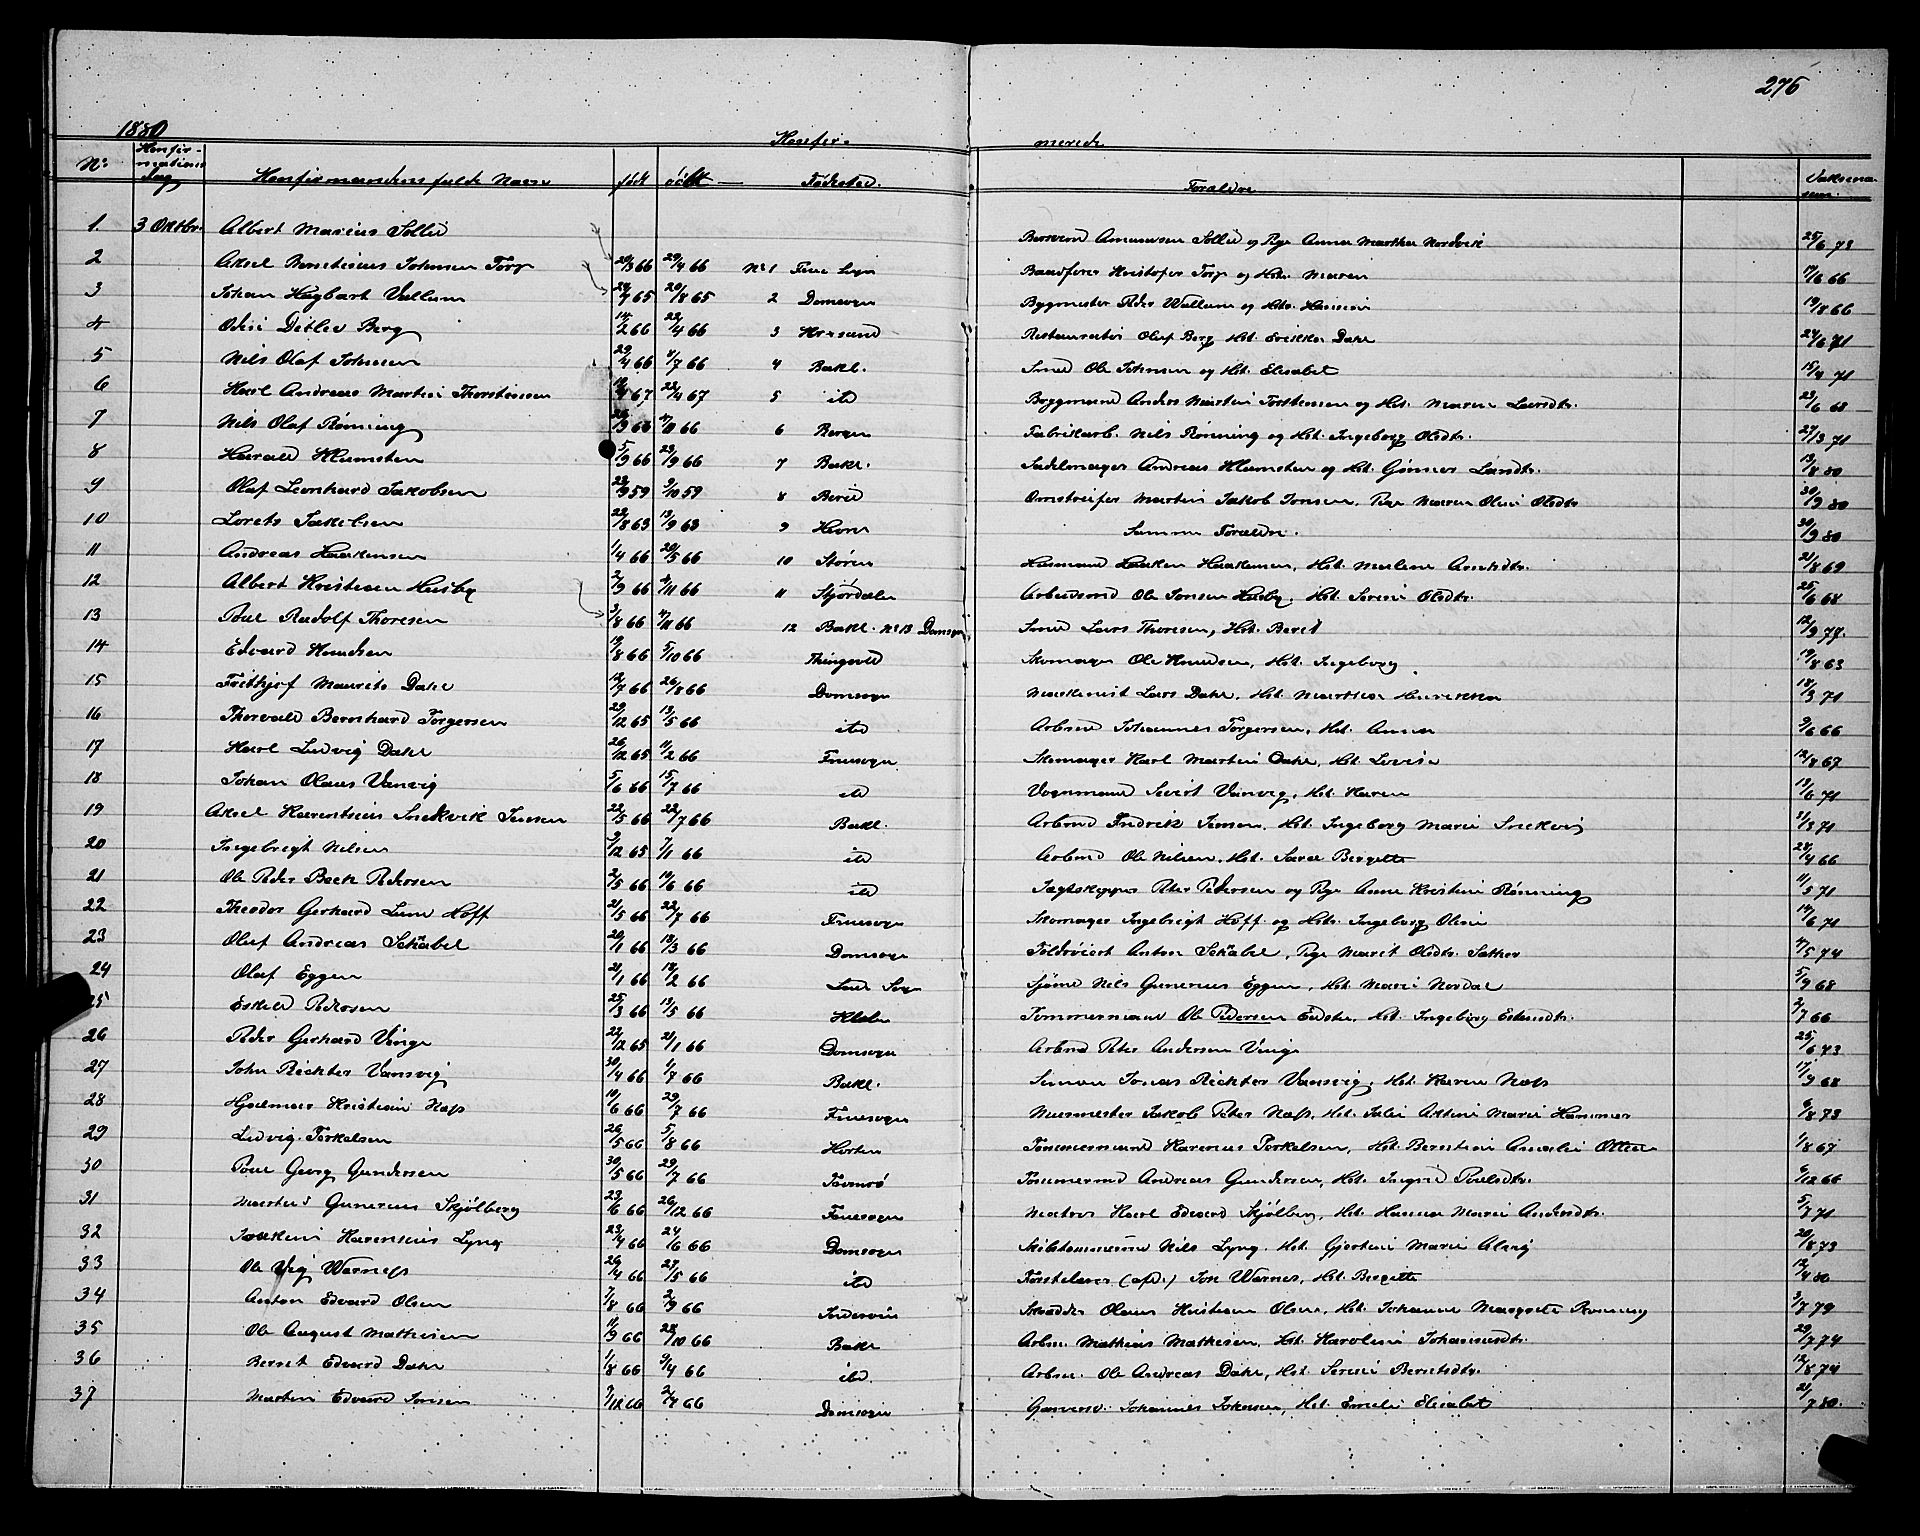 276
1880 Konfir- merede
No: Konfir-mations Dag Konfirmandens fulde Navn født døbt Fødested. Forældre Vaksina-
1. 3 Oktbr. Albert Marius Sollie Amundsen Sollie og Pige Anne Martha Nordvik 25/6 73
2 Aksel Johnsen Torp 20/3 66 29/4 66 No 1 Frue Sogn Kristofer Torp og Hst. Maren 7/6 66
3 Johan Hagbart Vullum 24/7 65 20/8 65 2 Domsogn Bygmester Peder Wullum og Hst. Hansine 19/8 66
4 Odin Ditlev Berg 14/2 66 22/4 66 3 Restauratør Oluf Berg Hst. Erikka Dahl 24/6 71
5 Nils Olaf Johnsen 29/4 66 8/7 66 4 Bakl. Smed Ole Johnsen og Hst. Elisabet 15/4 71
6 Karl Andreas Martin Thorstensen 22/4 67 5 itd Anders Martin Torstensen og Hst. Maren Larsdtr. 23/6 68
7 Nils Olaf Rønning 66 6 Bergen Fabrikarb. Nils Rønning og Hst. Ingeborg Olsdtr. 71
8 Harald Klumsten 5/9 66 23/9 66 7 Bakl. Sadelmager Andreas Klumsten og Hst. Larsdtr. 13/8 80
9 Olaf Leonhard Jakobsen 22/9 59 9/10 59 8 Martin Jakob Jonsen, Pige Maren Oline Olsdtr. 30/9 80
10 Lorets Jakobsen 22/8 63 13/9 63 9 Hevne Samme Forældre. 30/9 80
11 Andreas Haakensen 1/4 66 20/5 66 10 Støren Husmand Haaken Haakensen, Hst. Arntsdtr. 21/8 69
12 Albert Kristian Husby 2/9 66 4/11 66 11 Stjørdalen Arbeidsmd Ole Jonsen Husby, Hst. Serine Olsdtr. 25/6 68
13 Poul Rudolf Thoresen 3/8 66 66 12 Bakl. No 13 Domsogn Smed Lars Thoresen, Hst. Beret 12/9 77.
14 Edvard Knudsen 19/8 66 5/10 66 Thingvold Skomager Ole Knudsen, Hst. Ingeborg 19/8 63
15 Frithjof Maurits Dahl 12/7 66 26/8 66 Domsogn Maskinist Lars Dahl, Hst. Martha Henrikka 18/3 71
16 Thorvald Bernhard Torgersen 29/12 65 13/5 66 itd Arbmd Johannes Torgersen, Hst. Anna 9/6 66
17 Karl Ludvig Dahl 26/12 65 11/2 66 Fruesogn Skomager Karl Martin Dahl, Hst. Lovise 12/8 67
18 Johan Olaus Vanvig 5/6 66 15/7 66 itd Vognmand Sivert Vanvig, Hst. Karen 13/6 71
19 Aksel Snekvik Jensen 22/5 66 22/7 66 Bakl. Arbmd Fredrik Jensen, Hst. Ingeborg Marie Snekvig 3 71
20 Ingebrigt Nilsen 9/12 65 7/1 66 itd Arbmd Ole Nilsen, Hst. Sara Bergette 24/4 66
21 Ole Peder Beck Pedersen 2/5 66 10/6 66 itd Jagtskipper Peter Pedersen og Pige Anne Kristine Rønning 11/5 71
22 Theodor Gerhard Hoff 21/5 66 22/7 66 Fruesogn Skomager Ingebrigt Hoff og Hst. Ingeborg Oline 14/6 71
23 Oluf Andreas Schäbel 20/1 66 18/3 66 Domsogn Anton Schäbel, Pige Marit Olsdtr. 5 74
24 Olaf Eggen 21/1 66 18/2 66 Sogn Sjømd Nils Gunerius Eggen, Hst. Marie Nordal 5/9 68
25 Eskild Pedersen 25/3 66 13/5 66 Klæbu Tømmermand Ole Pedersen Hst. Ingeborg 2/7 66
26 Peder Gerhard Vinge 22/12 65 21/1 66 Domsogn Arbmd Peter Andersen Vinge 25/6 73
27 John Richter Vansvig 30/4 66 1/7 66 Bakl. Jonas Richter Vansvig, Hst. Karen Næss 17/9 68
28 Hjalmar Kristian Næss 10/6 66 29/7 66 Fruesogn Murmester Jakob Peter Næss, Hst. Julie Marie Hammer 6/8 73
29 Ludvig Torkelsen 26/5 66 5/8 66 Horten Tømmermand Torkelsen, Hst. Amalie 1/8 67
30 Poul Georg Gundersen 30/5 66 29/7 66 Tømmermd Andreas Gundersen, Hst. Ingrid Poulsdtr. 6/12 66
31 Martin Gunerius Skjølberg 23/6 66 26/12 66 Fruesogn Matros Karl Edvard Skjølberg, Hst. Hanna Marie Andersdtr. 5/7 71
32 Joakim Lyng 23/4 66 24/6 66 Domsogn Nils Lyng, Hst. Gjertine Marie 20/8 73
33 Ole Vig Warness 26/4 66 27/5 66 itd Hst. Bergitte 12/4 80
34 Anton Edvard Olsen 7/8 66 2/9 66 Inderøen Skrædder Olaus Kristian Olsen, Hst. Johanna Margrete Rønning 3/7 79
35 Ole August Mathisen 11/9 66 28/10 66 Bakl Arbm. Mathias Mathisen, Hst. Karoline Johannesdtr. 29/7 74
36 Bernt Edvard Dahl 1/8 66 66 itd. Arbm. Ole Andreas Dahl, Hst. Serine Berntsdtr. 12/8 74
37 Martin Edvard Jonsen 66 66 Domsogn Johannes Johnsen, Hst. Emelie Elisabet 21/7 80.